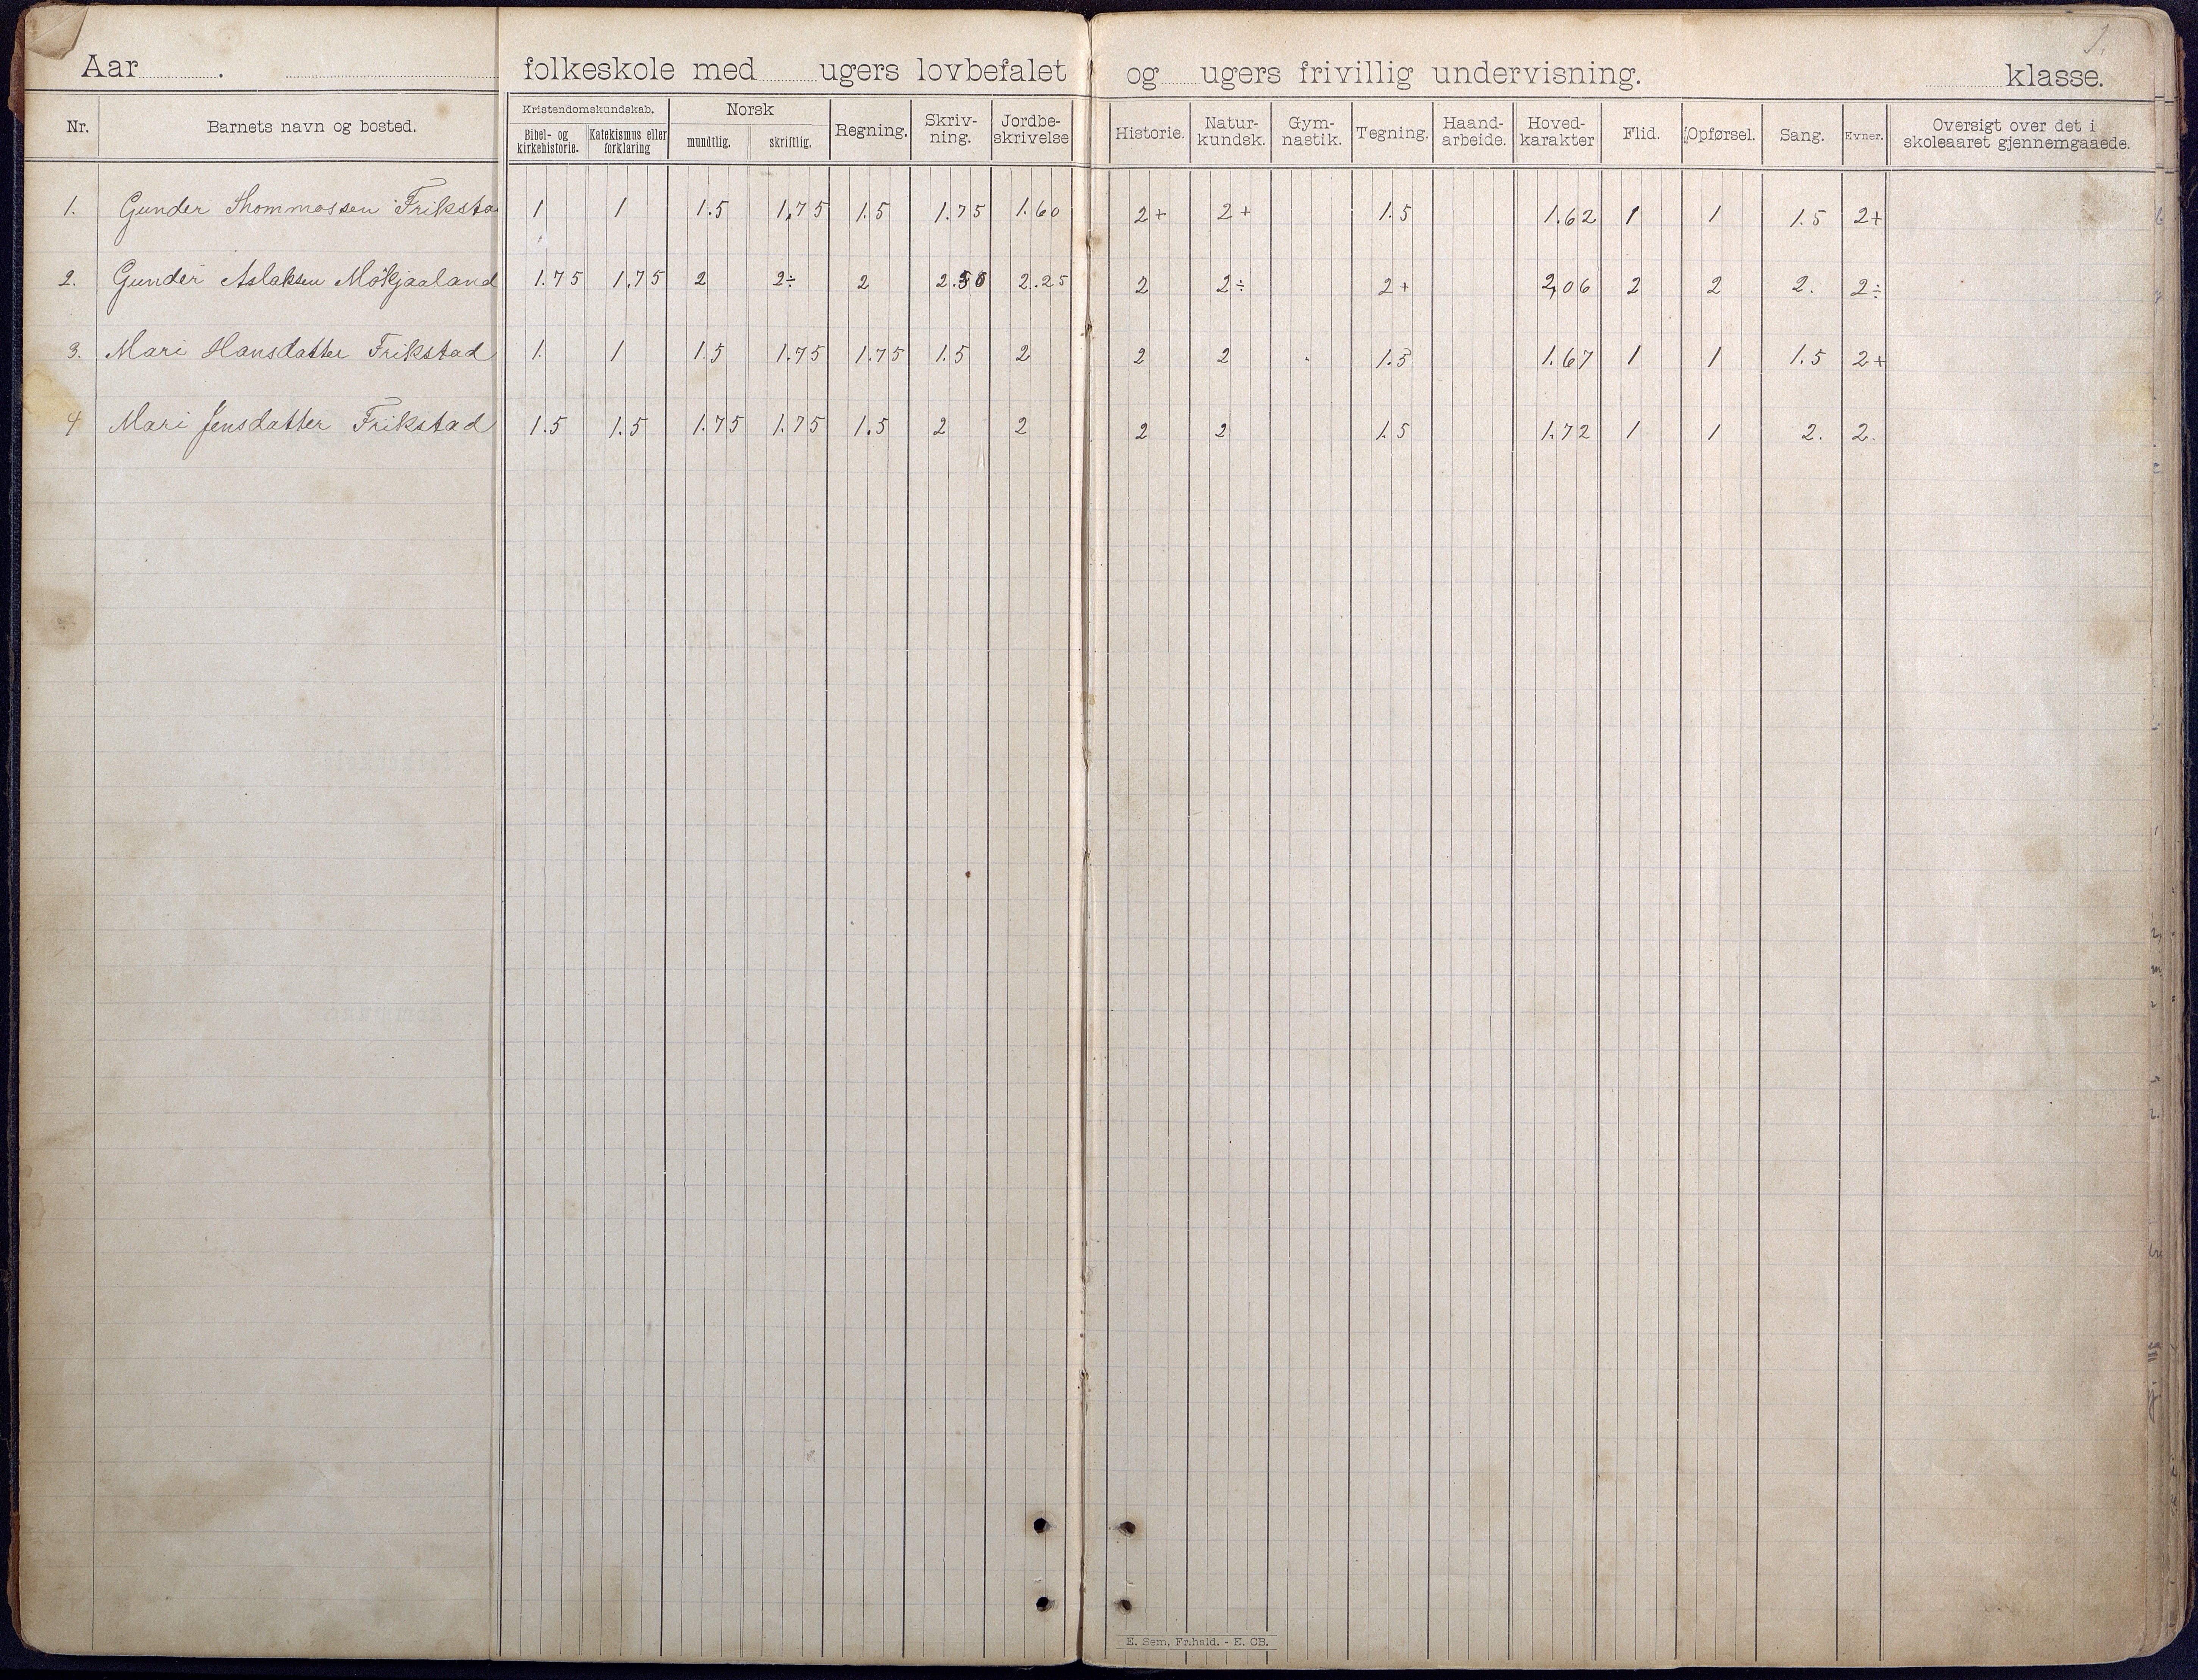 1.
Aar . folkeskole med ugers lovbefalet og ugers frivillig undervisning. klasse.
Nr. Barnets navn og bosted. Kristendomskundskab. Bibel- og kirkehistorie. Katekismus eller forklaring Norsk mundtlig. skriftlig. Regning. Skriv-ning. Jordbe-skrivelse Historie. Natur-kundsk. Gym-nastik. Tegning. Haand-arbeide. Hoved-karakter Flid. Opførsel. Sang. Evner. Oversigt over det i skoleaaret gjennemgaaede.
1. Gunder Thommassen Friksta 1 1 1.5 1,75 1.5 1.75 1.60 2+ 2+ 1.5 1.62 1 1 1.5 2+
2. Gunder Aslaksen Mökjaaland 1.75 1,75 2 2÷ 2 2.50 2.25 2 2÷ 2+ 2,06 2 2 2. 2÷
3. Mari Hansdatter Frikstad 1. 1 1.5 1.75 1.75 1.5 2 2 2 1.5 1.67 1 1 1.5 2+
4 Mari Jensdatter Frikstad 1.5 1.5 1.75 1.75 1.5 2 2 2 2 1.5 1.72 1 1 2. 2.
E. Sem, Fr.hald. - E. CB.